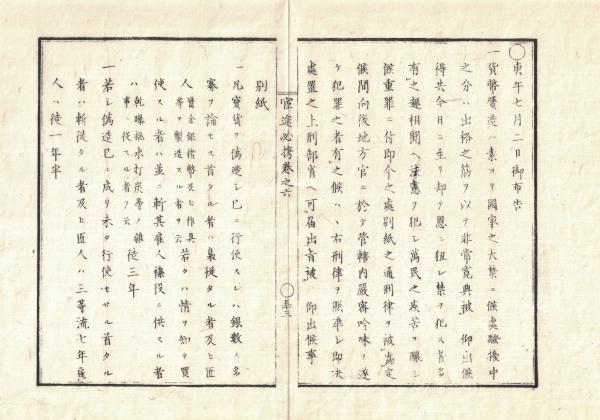 ○庚午七月二日御布告
一貨幣贋造ハ素ヨリ國家之大禁ニ候處騒擾中
之分ハ出格之筋ヲ以テ非常寛典被 仰出候
得共今日ニ至リ却テ恩ニ狃レ禁ヲ犯ス者多
有之趣相聞ヘ法憲ヲ犯シ萬民之疾苦ヲ釀シ
候重罪ニ付即今之處別紙之通刑律ヲ被為定
候間向後地方官ニ於テ管轄内嚴密吟味ヲ遂
ケ犯罪之者有之候ハヽ右刑律ヲ照準シ即決
處置之上刑部省ヘ可届出旨被 仰出候事
官途必携巻之六
○五三
別紙
一凡寳貨ヲ偽造シ已ニ行使スレハ銀數ノ多
寡ヲ論セス首タル者ハ梟從タル者及ヒ匠
人 贋金銀楮幣及ヒ作具等ヲ製造スル者ヲ云 若クハ情ヲ知テ買
使スル者ハ並ニ斬其雇人雜役ニ供スル者
ハ 乾曝挑水打炭等ノ雜事ニ從フスル者ヲ云 徒三年
一若シ偽造已ニ成リ未タ行使セサル首タル
者ハ斬從タル者及ヒ匠人ハ三等流七年雇
人ハ徒一年半